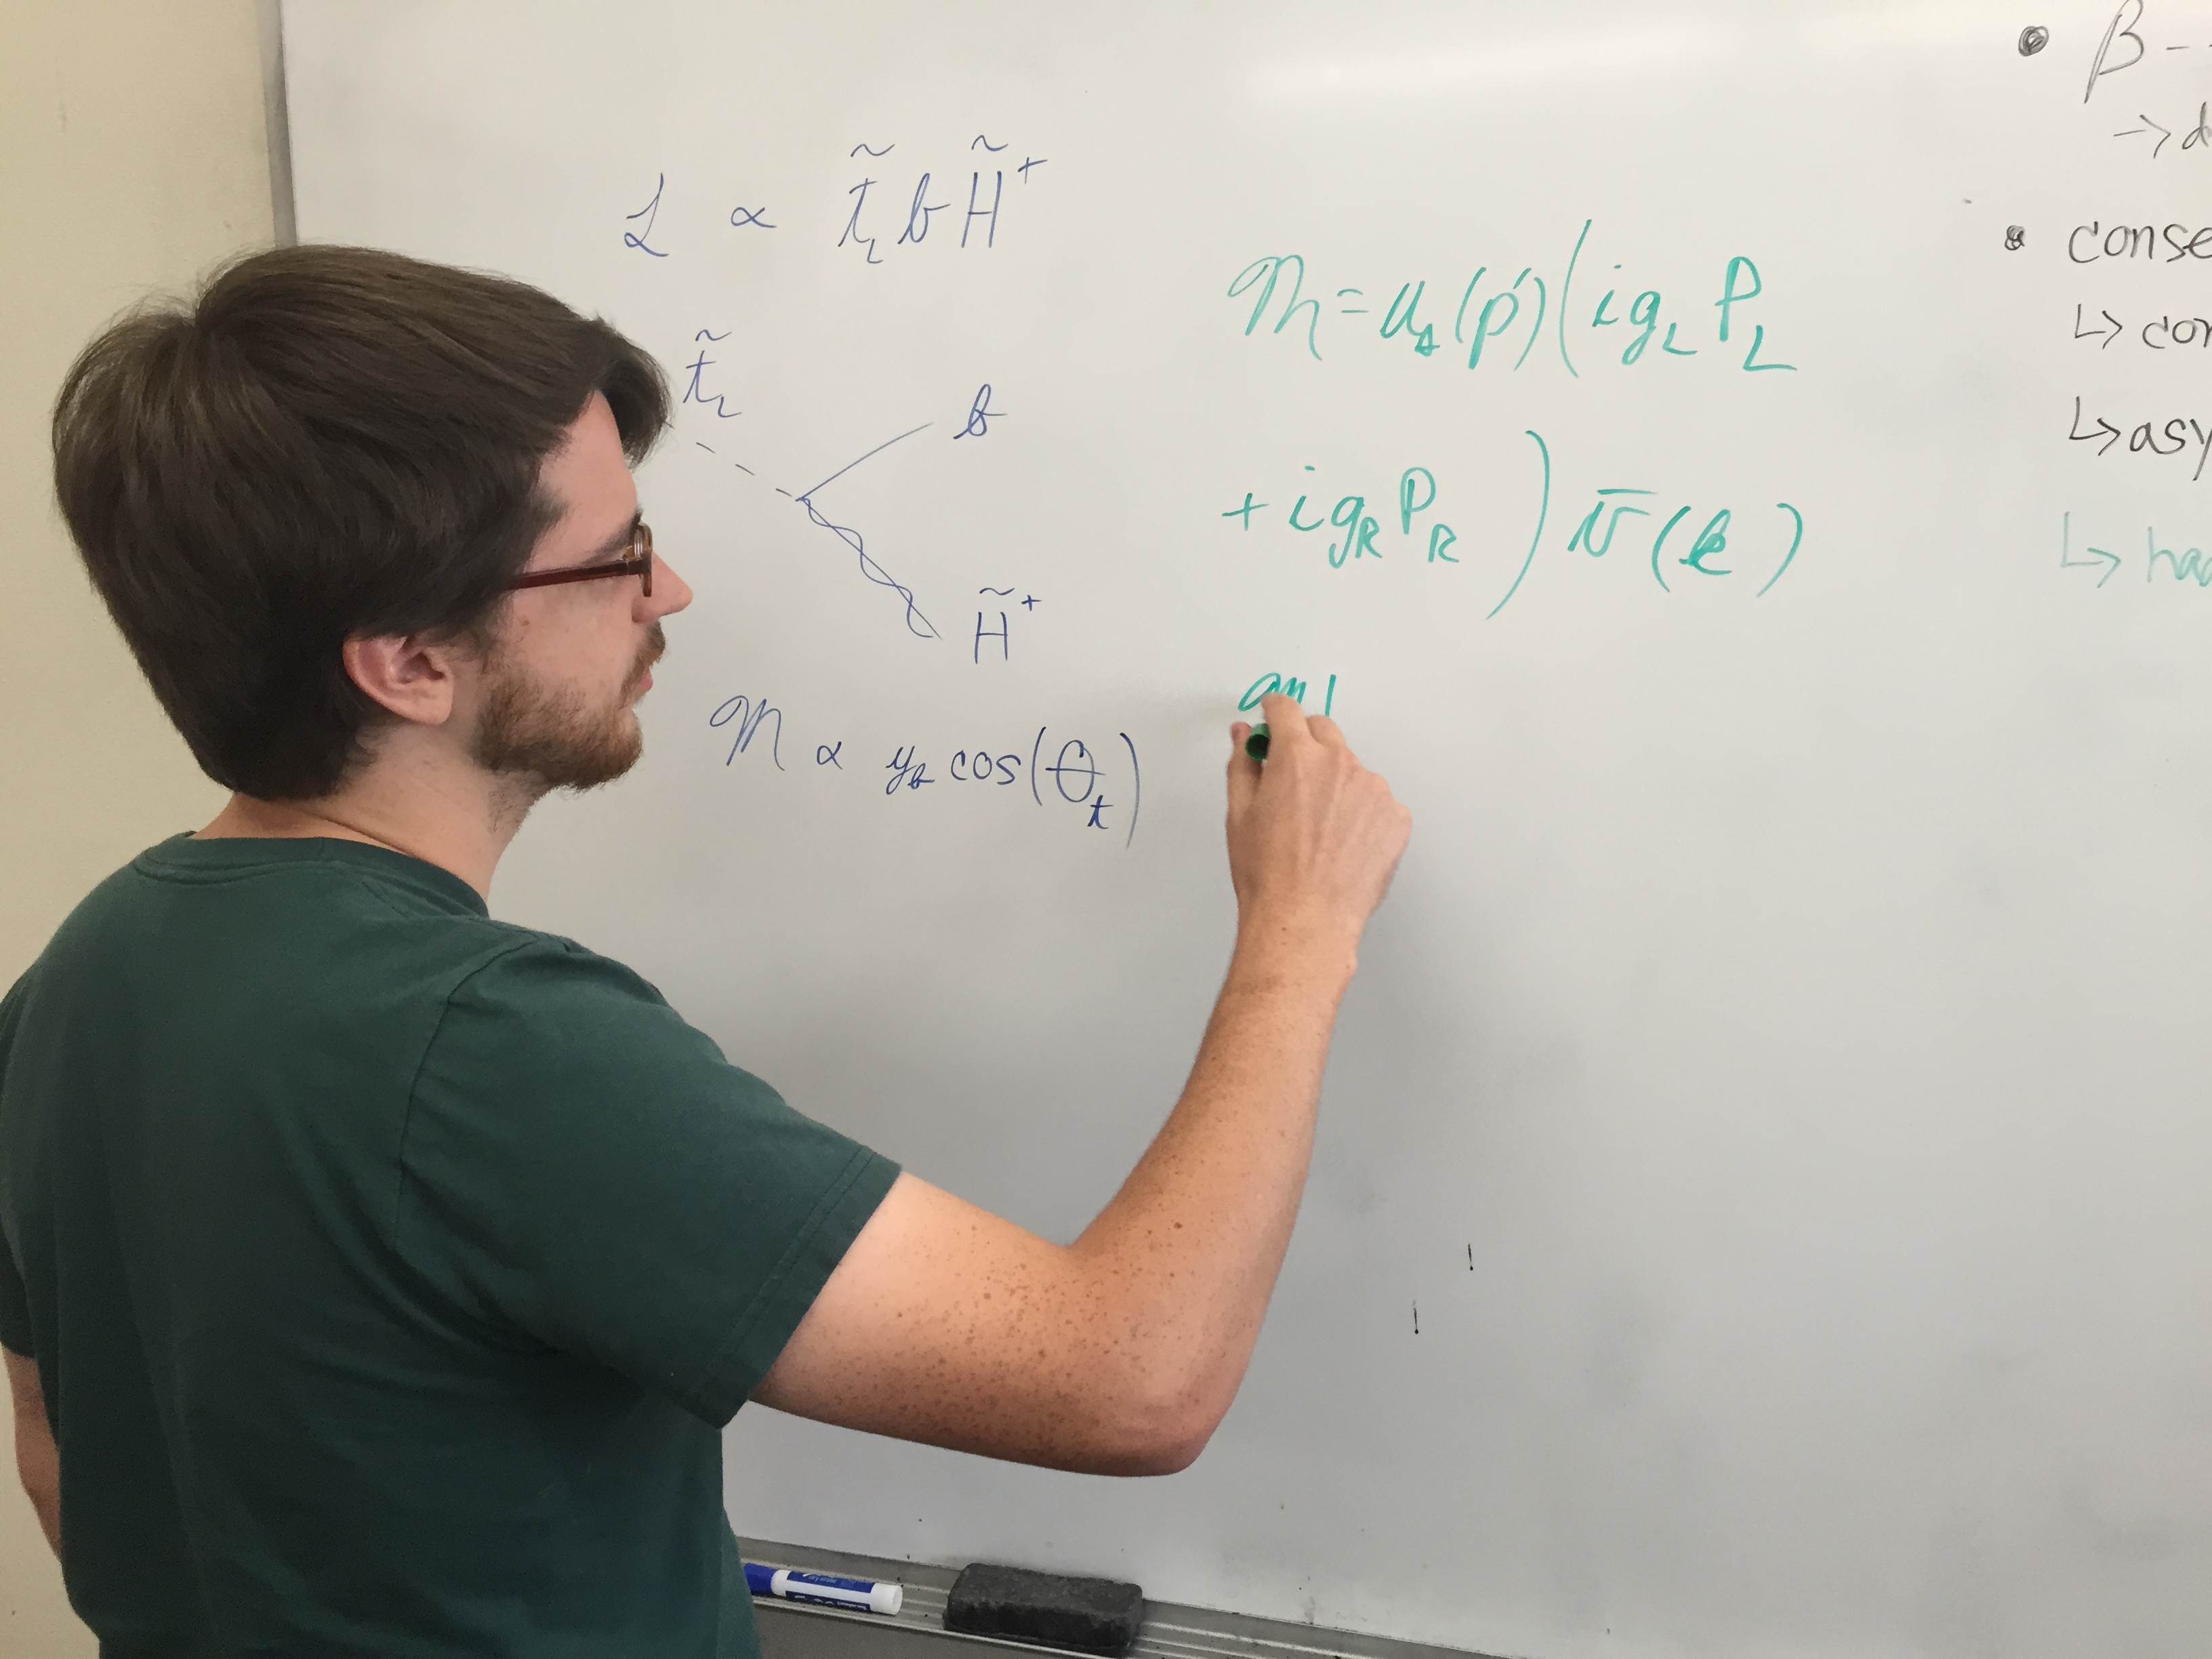 ℒ ∝ t̃_L b H̃⁺
t̃_L
b
H̃⁺
ℳ ∝ y_b cos(θ_t)
ℳ = u_s(p')(i g_L P_L
+ i g_R P_R) v̄(k)
β -
→ d
conse
↳ con
↳ asy
↳ had